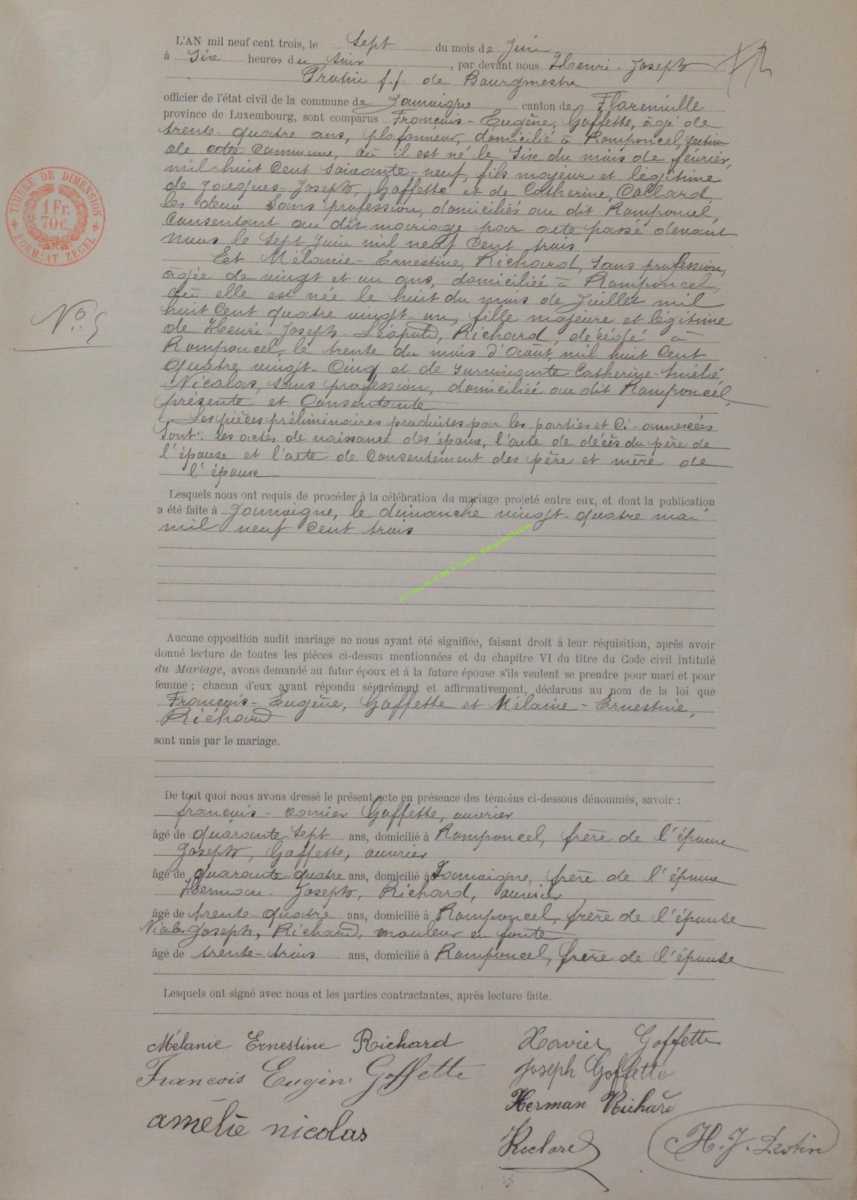 L'AN mil neuf cent trois, le sept du mois de Juin
à Six heures du soir, par devant nous Henri-Joseph
f.f. de Bourgmestre
officier de l'état civil de la commune de Jamoigne canton de Florenville
province de Luxembourg, sont comparus François-Eugène, Goffette, âgé de
trente-quatre ans, plafonneur, domicilié à Romponcel, section
de cette Commune, où il est né le Six du mois de février,
mil huit Cent soixante-neuf, fils majeur et légitime
de Jacques-Joseph, Goffette et de Catherine, Collard,
les deux sans profession, domiciliés au dit Romponcel,
Consentant au dit mariage par acte passé devant
nous le sept Juin mil neuf Cent trois
Et Mélanie-Ernestine, Richard, sans profession,
âgée de vingt et un ans, domiciliée à Romponcel,
où elle est née le huit du mois de Juillet mil
huit Cent quatre vingt-un, fille majeure et légitime
de Henri-Joseph-Léopold, Richard, décédé à
Romponcel, le trente du mois d'Août, mil huit Cent
quatre vingt-Cinq et de survivante Catherine-Amélie
Nicolas, sans profession, domiciliée au dit Romponcel,
présente et Consentante
Les pièces préliminaires produites par les parties et Ci-annexées
sont: les actes de naissance des époux, l'acte de décès du père de
l'épouse et l'acte de Consentement des père et mère de
l'épouse
TIMBRE DE DIMENSION
1 Fr. 70c.
FORMAAT ZEGEL
N° 5
Lesquels nous ont requis de procéder à la célébration du mariage projeté entre eux, et dont la publication
a été faite à Jamoigne, le dimanche vingt-quatre mai
mil neuf Cent trois
Aucune opposition audit mariage ne nous ayant été signifiée, faisant droit à leur réquisition, après avoir
donné lecture de toutes les pièces ci-dessus mentionnées et du chapitre VI du titre du Code civil intitulé
du Mariage, avons demandé au futur époux et à la future épouse s'ils veulent se prendre pour mari et pour
femme ; chacun d'eux ayant répondu séparément et affirmativement, déclarons au nom de la loi que
François-Eugène, Goffette et Mélanie-Ernestine,
Richard
sont unis par le mariage.
De tout quoi nous avons dressé le présent acte en présence des témoins ci-dessous dénommés, savoir :
françois-xavier Goffette, ouvrier
âgé de quarante-sept ans, domicilié à Romponcel, frère de l'épouse
Joseph, Goffette, ouvrier
âgé de quarante quatre ans, domicilié à Jamoigne, frère de l'épouse
Herman-Joseph, Richard, ouvrier
âgé de trente-quatre ans, domicilié à Romponcel, frère de l'épouse
Joseph, Richard, mouleur en fonte
âgé de trente-trois ans, domicilié à Romponcel, frère de l'épouse
Lesquels ont signé avec nous et les parties contractantes, après lecture faite.
Mélanie Ernestine Richard
Xavier Goffette
François Eugène Goffette
Joseph Goffette
Herman Richard
amélie nicolas
Richard
H. J.